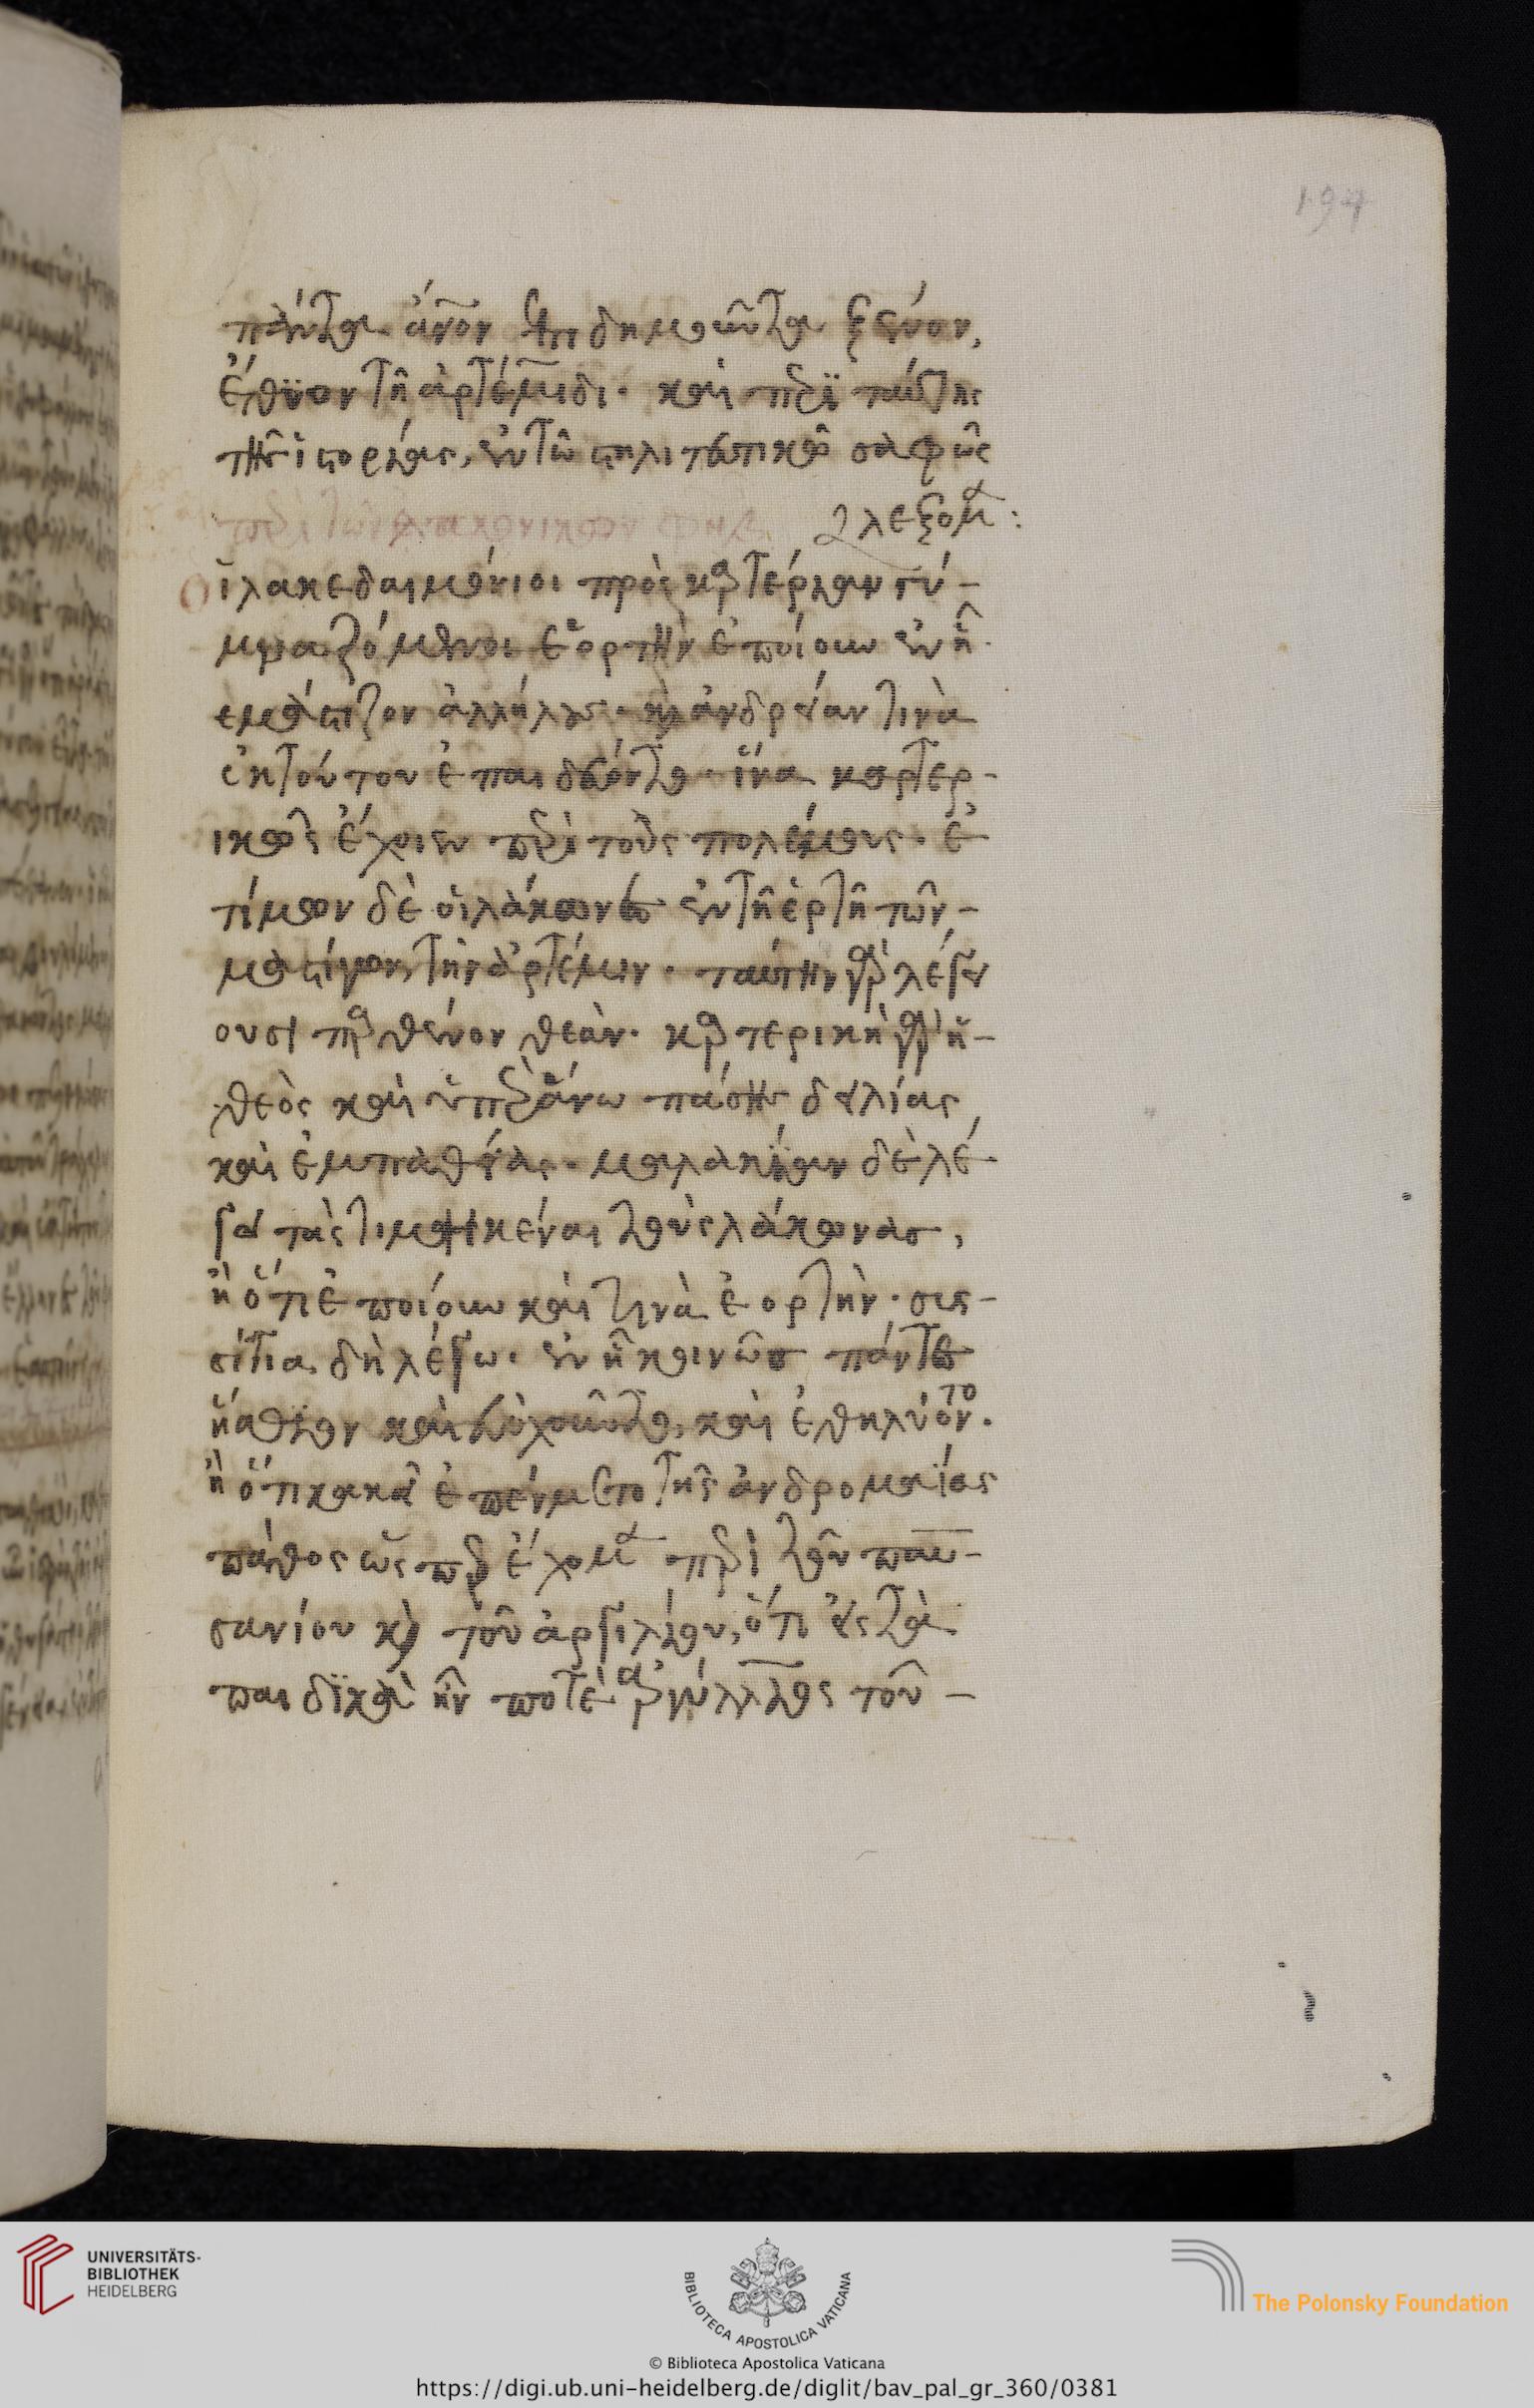 194
πάντα ἄνον ἐπιδημοῦντα ξένον,
ἔθυον τῆ ἀρτέμιδι. καὶ περὶ ταύτης
τῆς ἱστορίας, ἐν τῶ στηλιτευτικῶ σαφῶς
λέξομ:
Οἱ λακεδαιμόνιοι πρὸς καρτερίαν γυ-
μναζόμενοι ἑορτὴν ἐποίουν ἐν ἧ
ἐμάστιζον ἀλλήλους. καὶ ἀνδρείαν τινὰ
ἐκ τούτου ἐπαιδεύοντο. ἵνα καρτερ-
ικῶς ἔχοιεν περὶ τοὺς πολέμους. ἐ
τίμων δὲ οἱ λάκωνες ἐν τῆ ἑρτῆ τῶν
μαστίγων τὴν ἄρτέμιν. ταύτην γὰρ λέγ
ουσι παρθένον θεὰν. καρτερικὴ γὰρ ἡ
θεὸς καὶ ὑπεράνω πάσης δειλίας
καὶ ἐμπαθείας. μαλακίαν δὲ λέ
γει τὰς τιμηκέναι τοὺς λάκωνας,
ἢ ὅτι ἐποίουν καὶ τινὰ ἑορτὴν. συσ-
σίτια δὴ λέγω. ἐν ἧ κοινῶς πάντες
ἤσθιον καὶ εὐωχοῦντο, καὶ ἐθηλύοντο.
ἢ ὅτι κακῶ ἐπέμετο τῆς ἀνδρομανίας
πάθος ὡς παρέχομ περὶ τοῦ παυ-
σανίου καὶ τοῦ ἀργιλίου, ὅτι εἰς τὰ
παιδικὰ ἦν ποτὲ ἀργιλλίος τοῦ
UNIVERSITÄTS-
BIBLIOTHEK
HEIDELBERG
BIBLIOTECA APOSTOLICA VATICANA
The Polonsky Foundation
© Biblioteca Apostolica Vaticana
https://digi.ub.uni-heidelberg.de/diglit/bav_pal_gr_360/0381